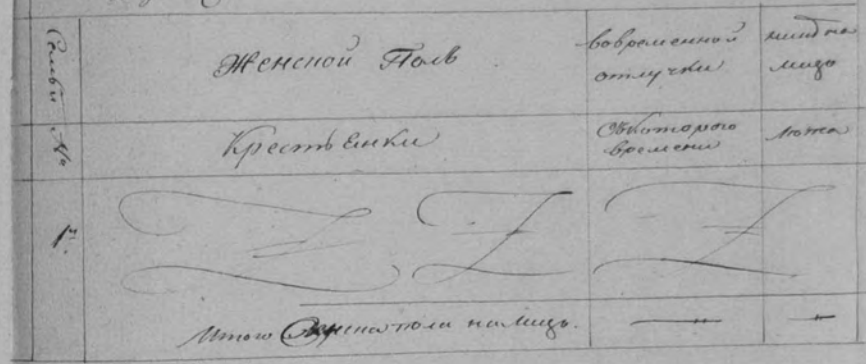 Семьи №
Женской Полъ
вовременной
отлучки
ныне на
лицо
Крестьянки
Съкотораго
времени
лета
1й.
Итого Женска пола налицо.